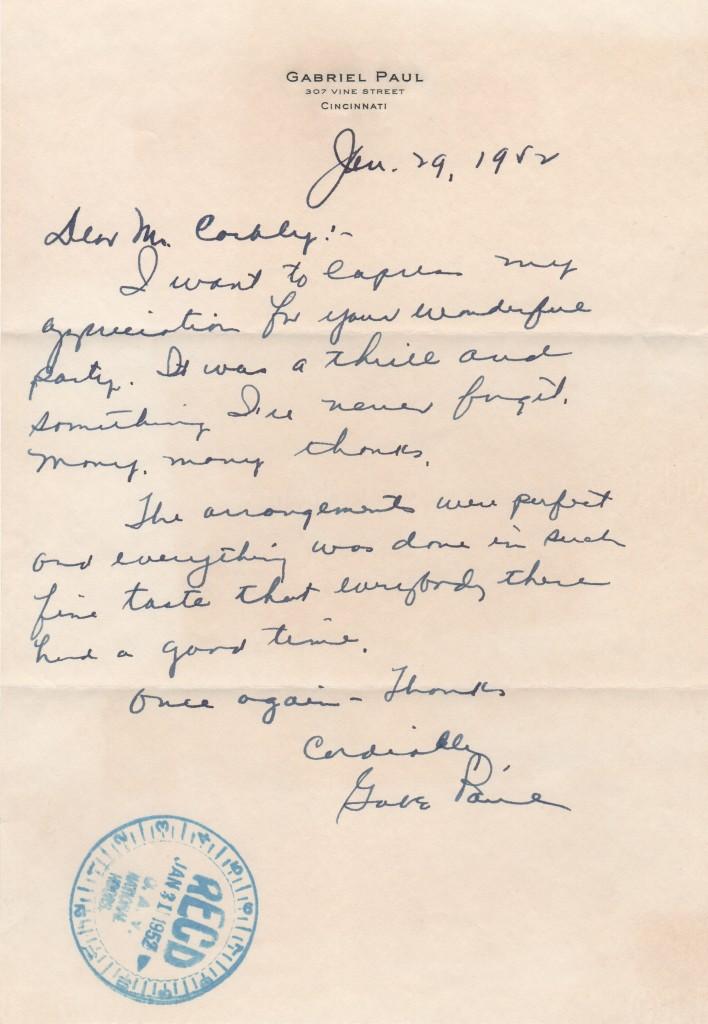 GABRIEL PAUL
307 VINE STREET
CINCINNATI
Jan. 29, 1952
Dear Mr. Corbly:-
I want to express my
appreciation for your wonderful
party. It was a thrill and
something I'll never forget.
Many, many thanks.
The arrangements were perfect
and everything was done in such
fine taste that everybody there
had a good time.
Once again - Thanks
Cordially
Gabe Paul
RECD
JAN 31 1952
D. A. V.
NATIONAL
HDQRS.